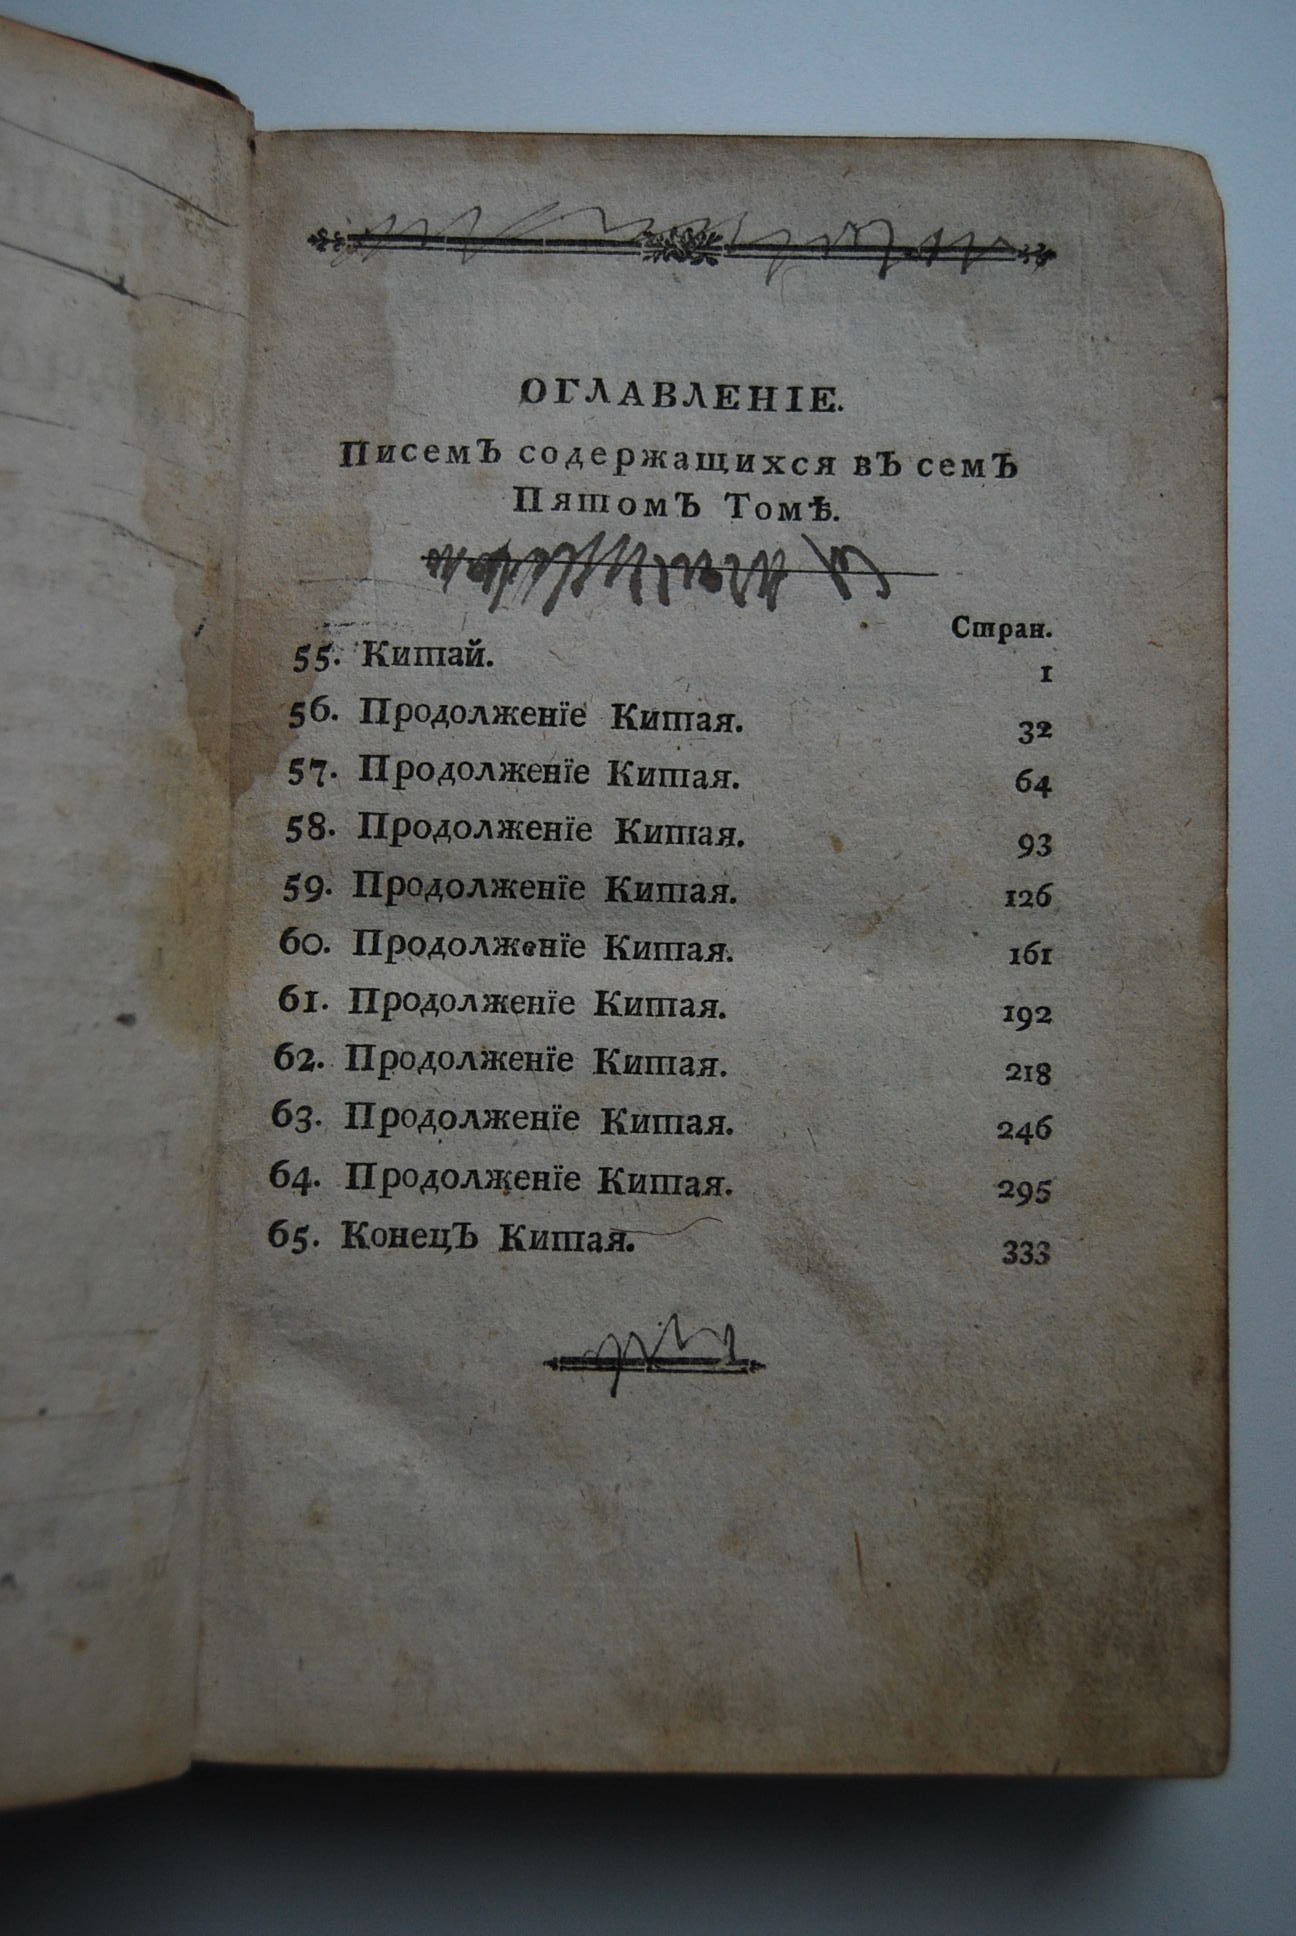 ОГЛАВЛЕНІЕ.
Писемъ содержащихся въ семъ
Пятомъ Томѣ.
Стран.
55. Китай. 1
56. Продолженїе Китая. 32
57. Продолженїе Китая. 64
58. Продолженїе Китая. 93
59. Продолженїе Китая. 126
60. Продолженїе Китая. 161
61. Продолженїе Китая. 192
62. Продолженїе Китая. 218
63. Продолженїе Китая. 246
64. Продолженїе Китая. 295
65. Конецъ Китая. 333